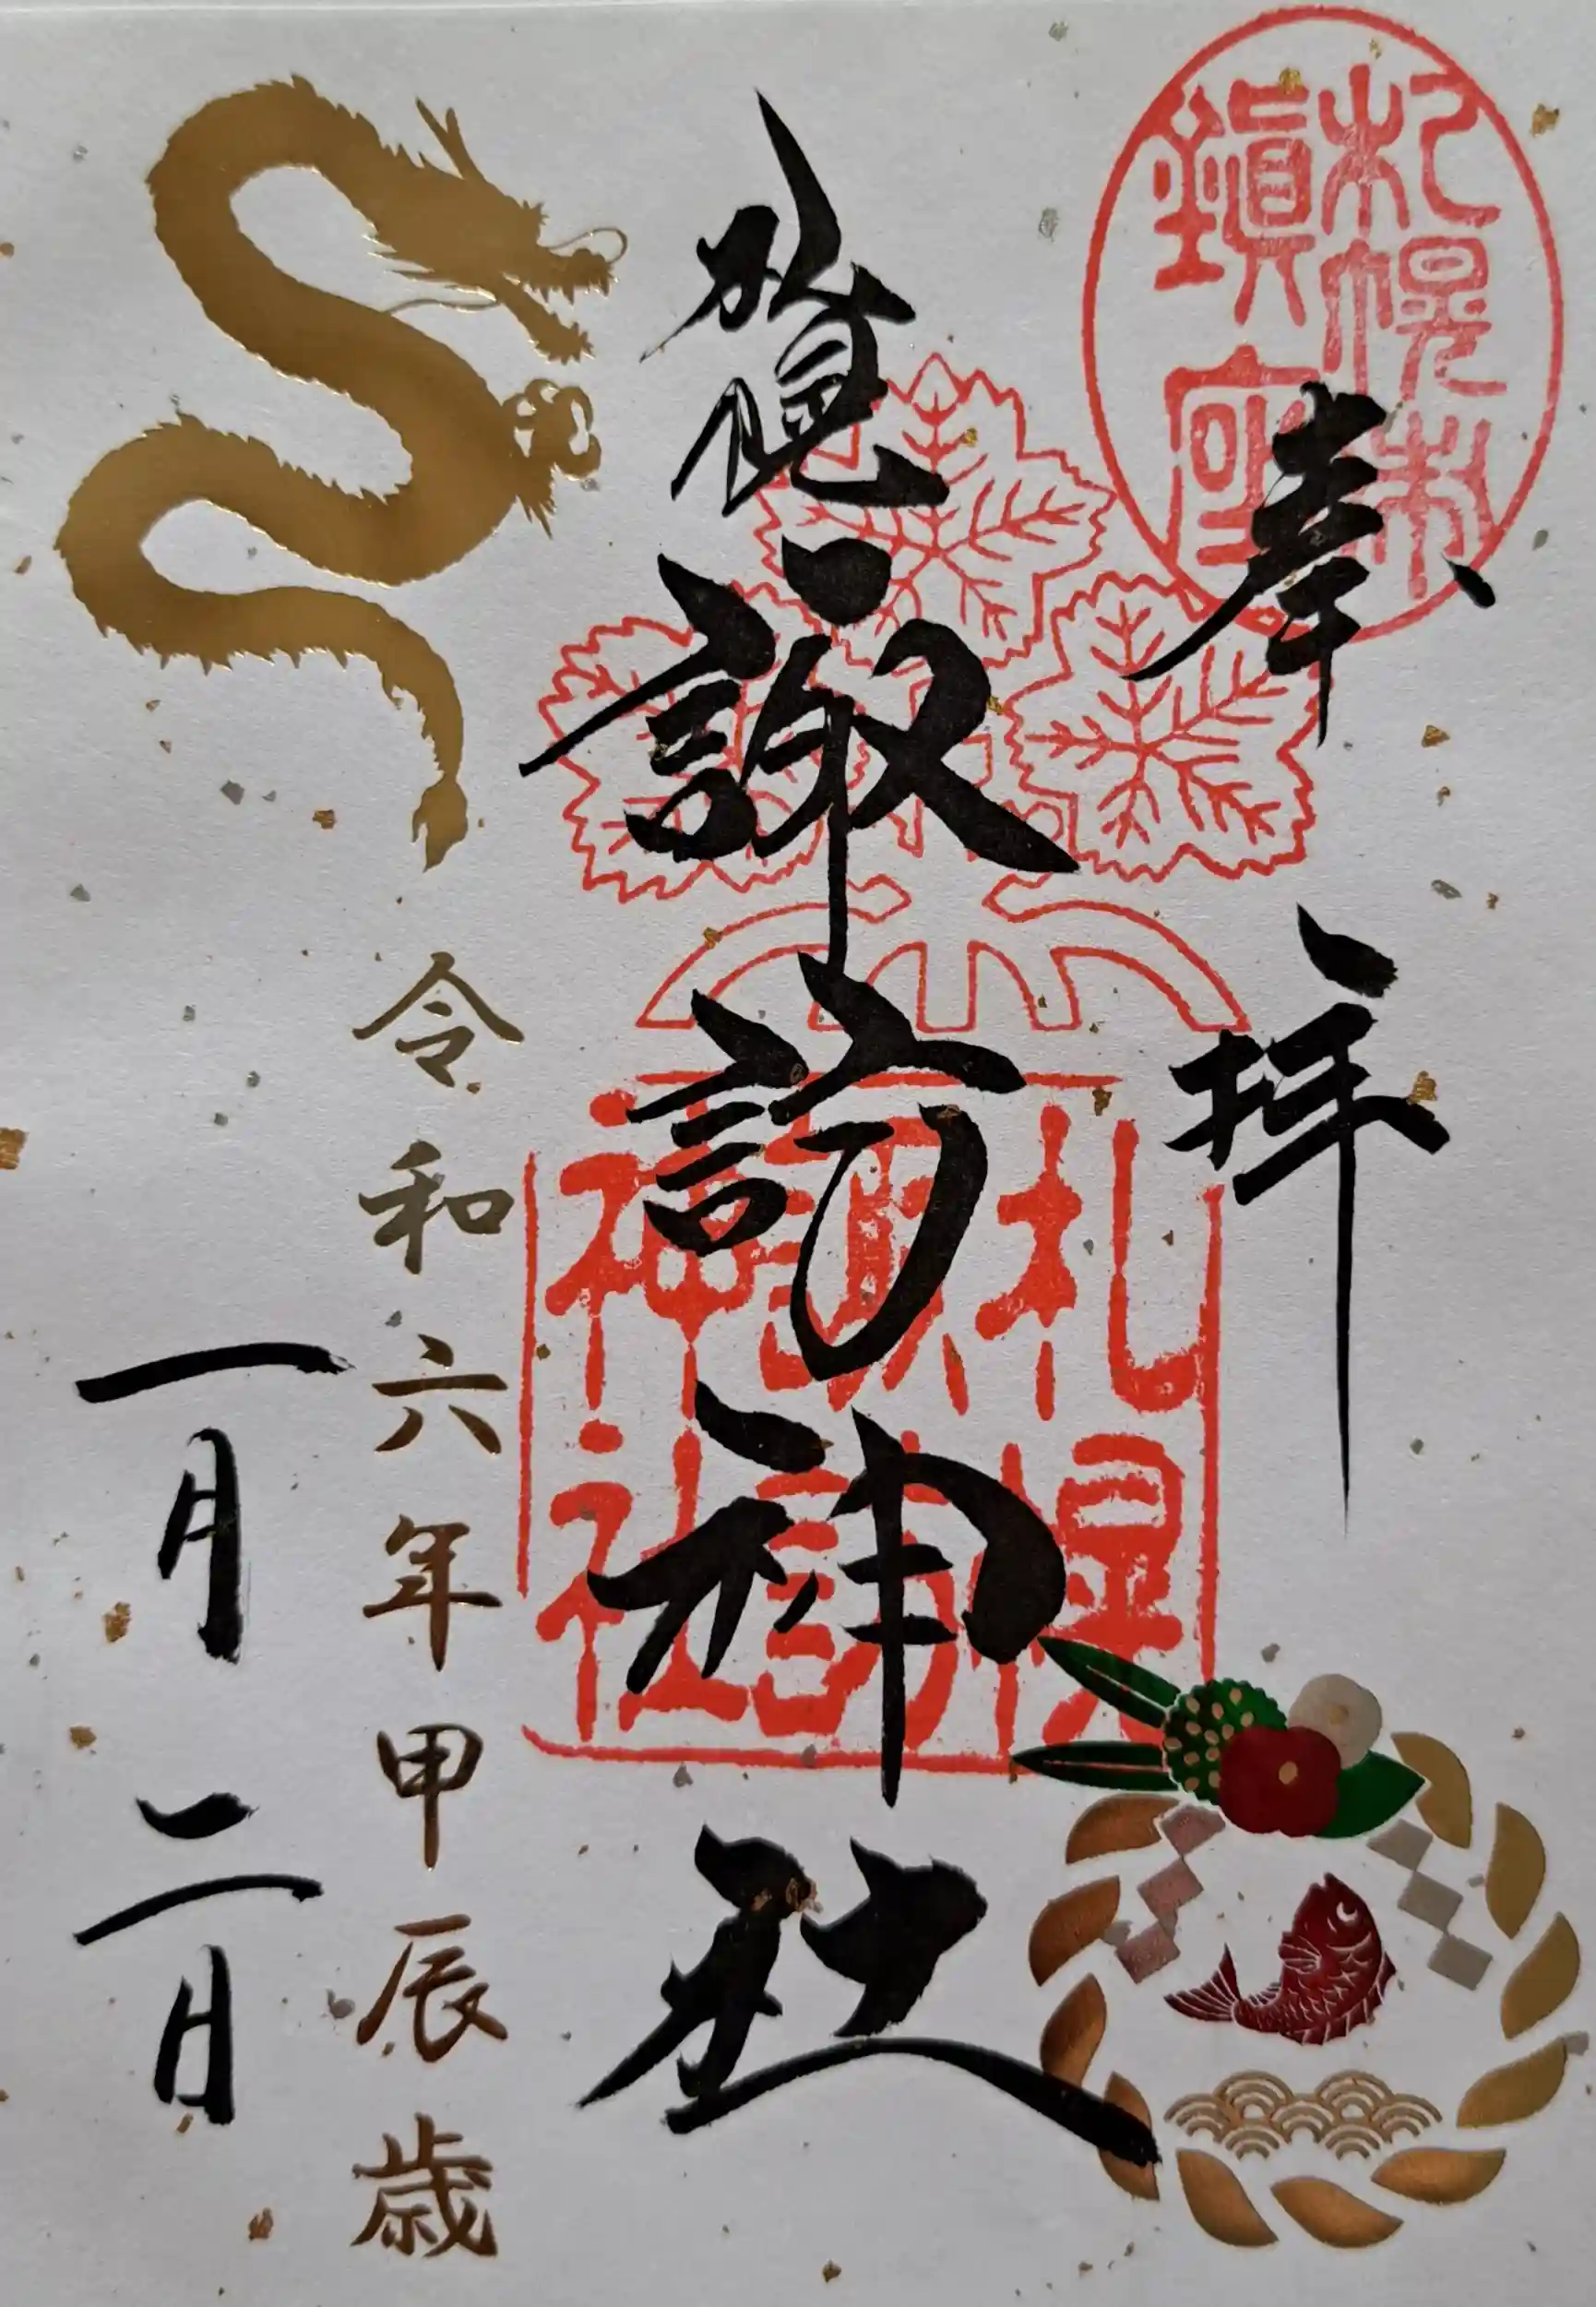 札幌市
鎭座
奉拝
札幌諏訪神社
札幌
諏訪
神社
令和六年甲辰歳
一月二日